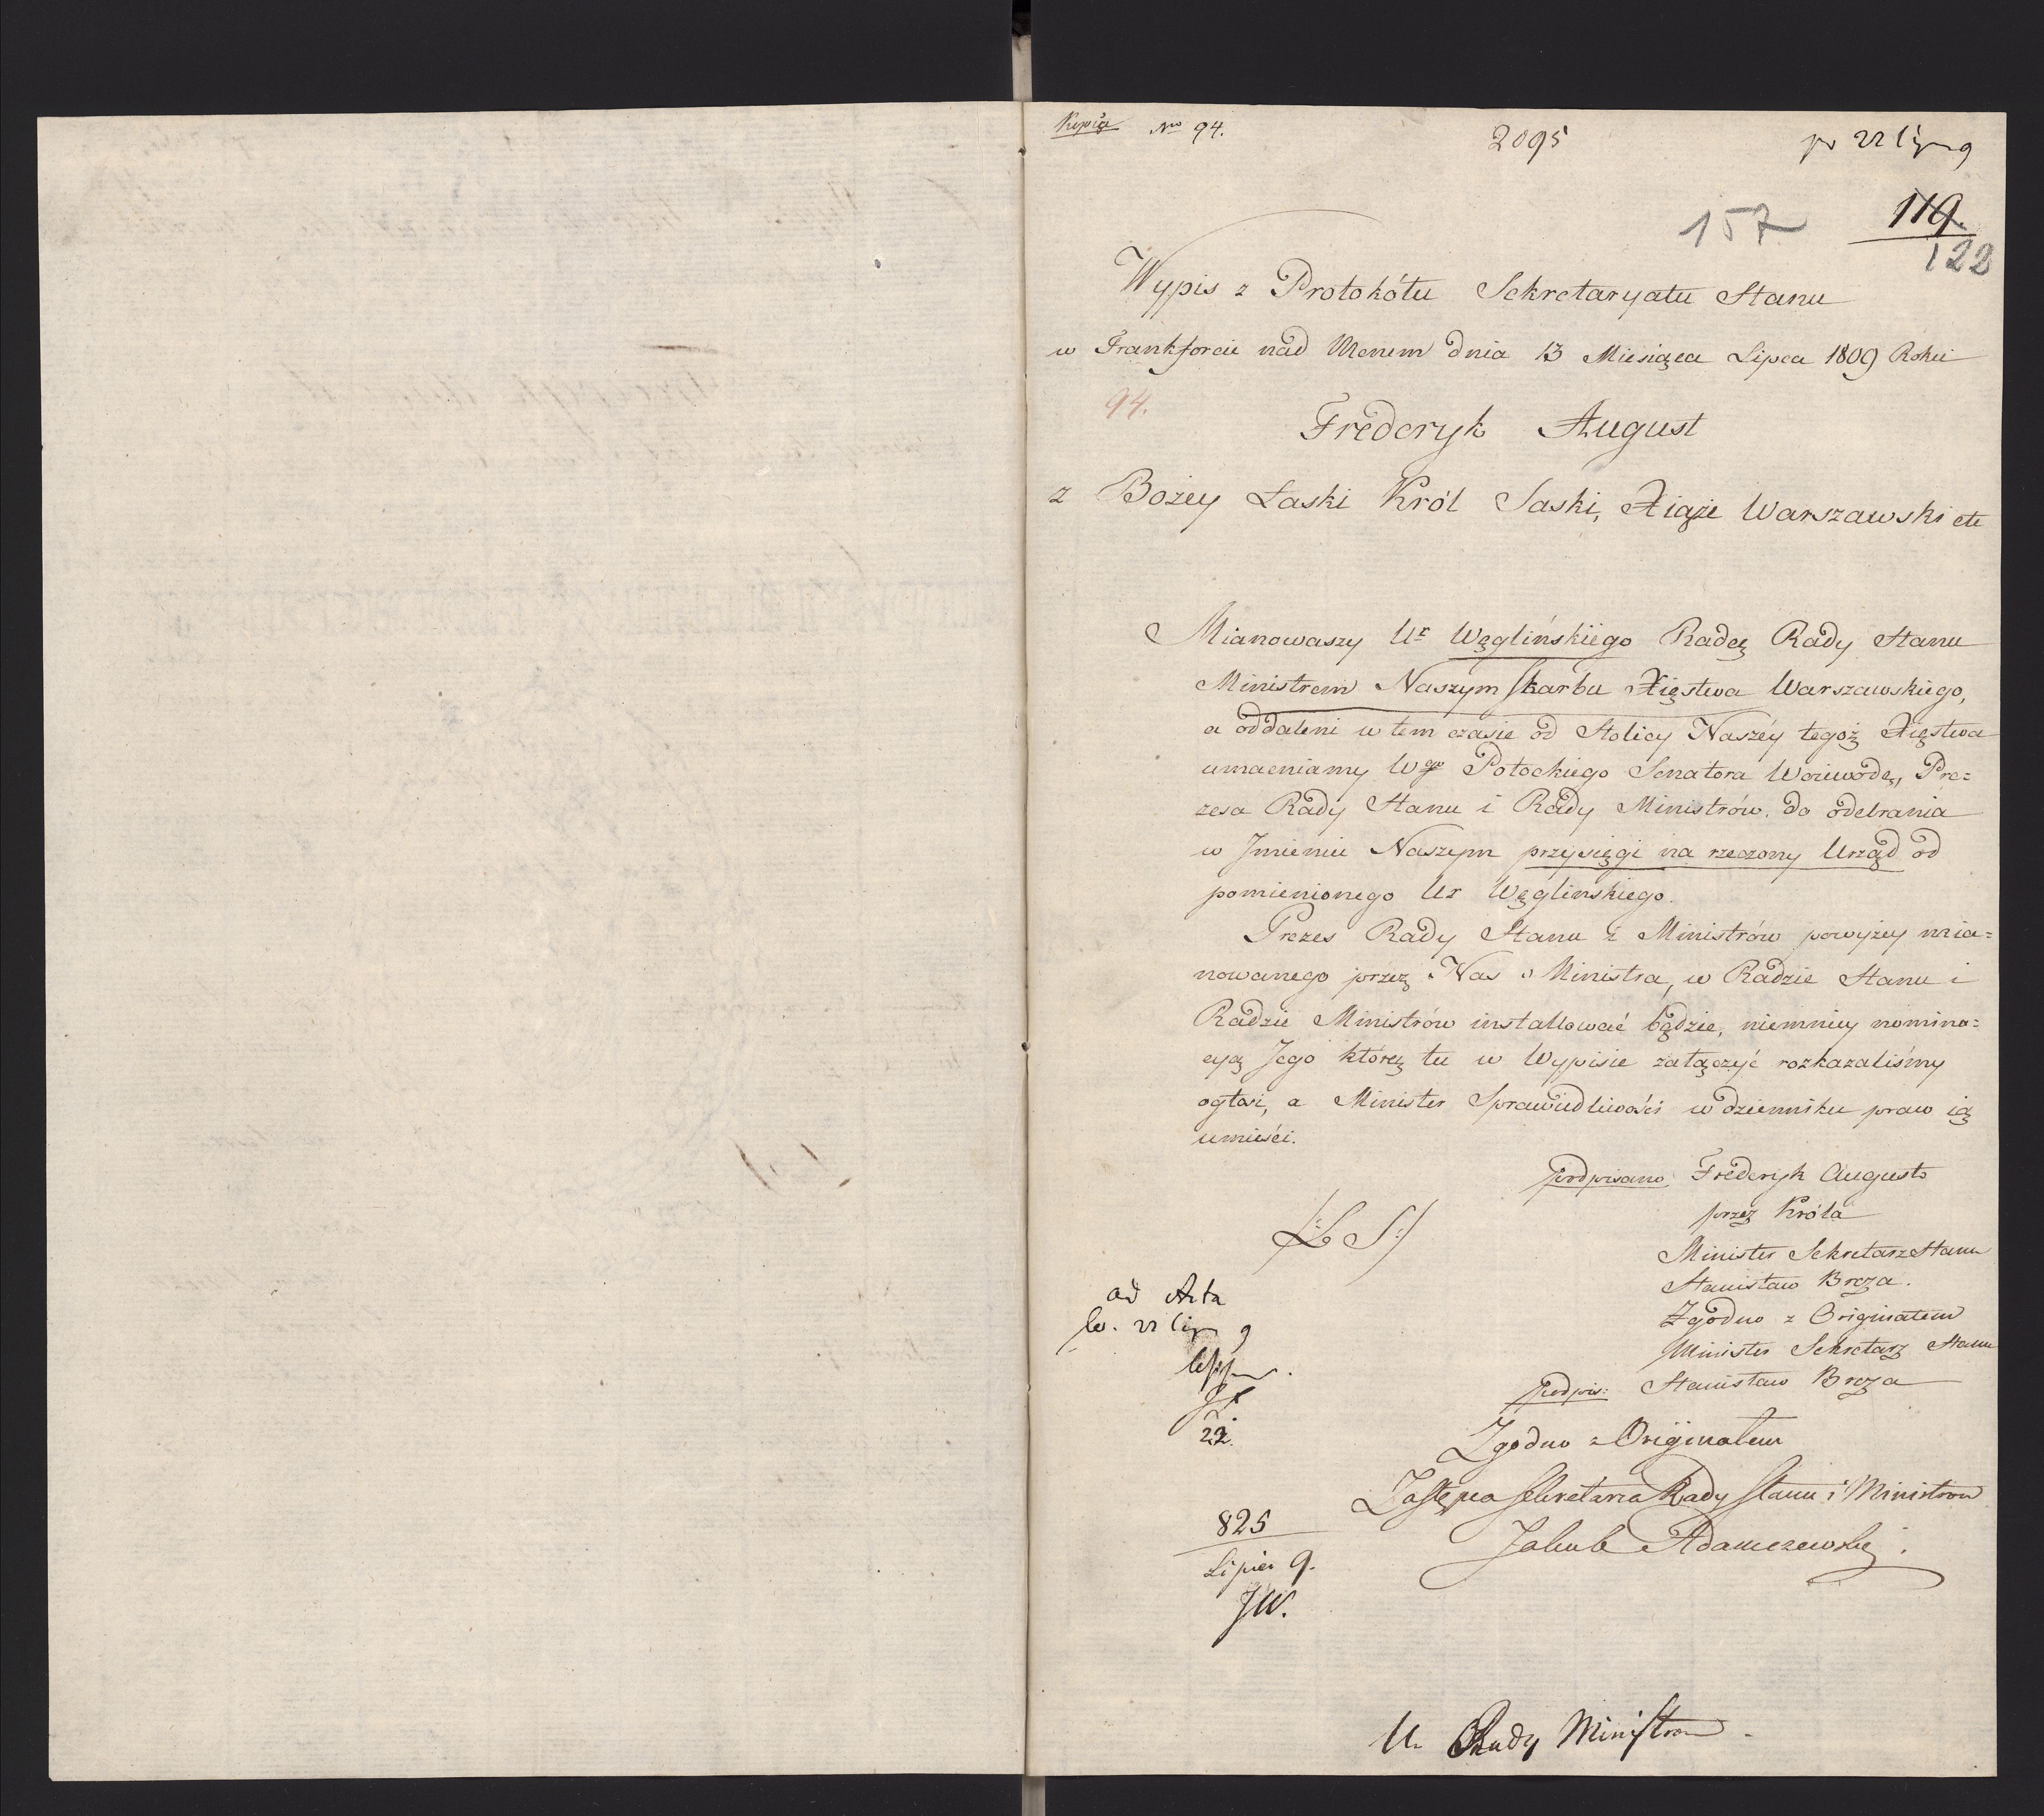 Kopia Nro 94.
2095
pr 22 lip 9
157
119.
122
Wypis z Protokółu Sekretaryatu Stanu
w Frankforcie nad Menem dnia 13 Miesiąca Lipca 1809 Roku
94.
Frederyk August
z Bożey Łaski Król Saski, Xiąże Warszawski etc
Mianowaszy Ur Węglińskiego Radcę Rady Stanu
Ministrem Naszym Skarbu Xięstwa Warszawskiego,
a oddaleni w tem czasie od Stolicy Naszéy tegoż Xięstwa
umacniamy Wgo Potockiego Senatora Woiewodę, Pre=
zesa Rady Stanu i Rady Ministrów. do odebrania
w Jmieniu Naszym przysięgi na rzeczony Urząd od
pomienionego Ur Węglinskiego.
Prezes Rady Stanu i Ministrów powyżey mia=
nowanego przez Nas Ministra, w Radzie Stanu i
Radzie Ministrów installować będzie, niemniey nomina=
cyą Jego którą tu w Wypisie załączyć rozkazaliśmy
ogłosi, a Minister Sprawiedliwości w dzienniku praw ią
umieści.
podpisano Frederyk August
przez Króla
(:L S:)
Minister Sekretarz Stanu
Stanisław Breza.
Zgodno z Originałem
Minister Sekretarz Stanu
Podpis: Stanisław Breza
ad Acta
22 lip 9
22.
Zgodno z Originałem
Zastępca Sekretarza Rady Stanu i Ministrow
Jakub Adamczewski.
825
Lipiec 9.
JW.
U. Rady Ministrow